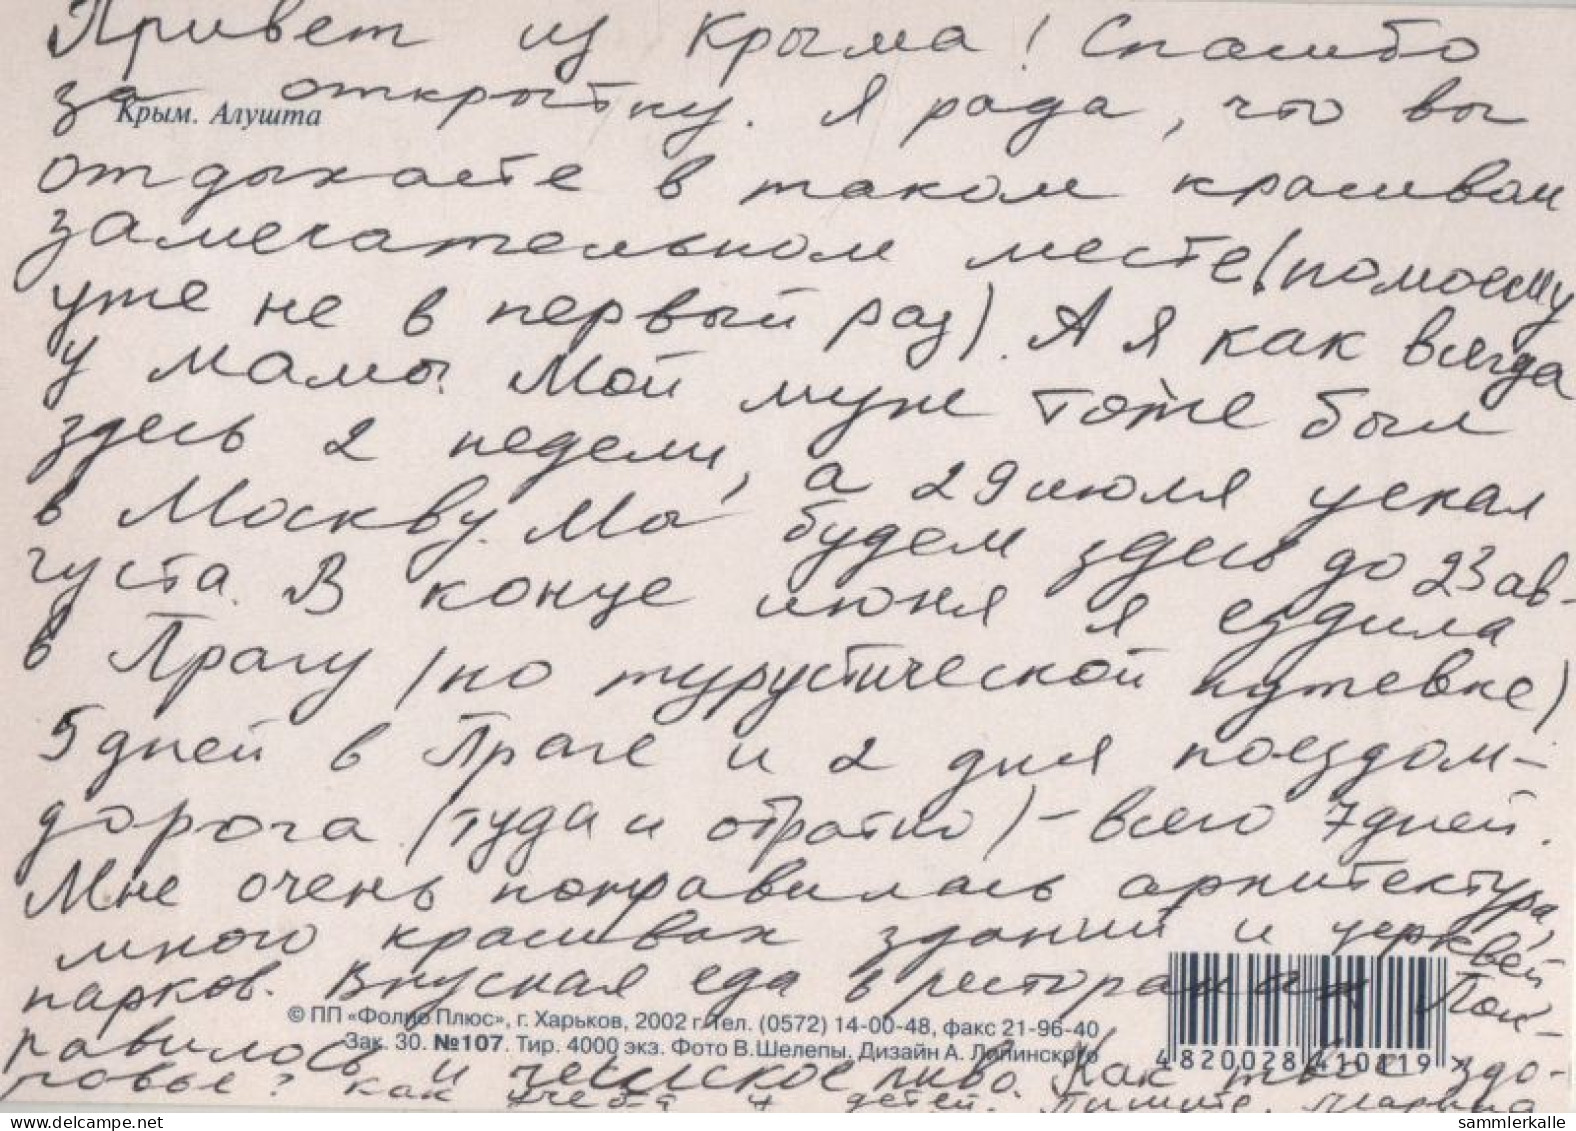 Привет из Крыма! Спасибо
за открытку. Я рада, что вы
Крым. Алушта
отдыхаете в таком красивом
замечательном месте (помоему
уже не в первый раз). А я как всегда
у мамы. Мой муж тоже был
здесь 2 недели, а 29 июля уехал
в Москву. Мы будем здесь до 23 ав-
густа. В конце июня я ездила
в Прагу (по турустической путевке)
5 дней в Праге и 2 дня поездом-
дорога (туда и обратно) - всего 7 дней.
Мне очень понравилась архитектура,
много красивых зданий и церквей
парков. Вкусная еда в ресторанах. Пон-
© ПП «Фолио Плюс», г. Харьков, 2002 г. Тел. (0572) 14-00-48, факс 21-96-40
Зак. 30. №107. Тир. 4000 экз. Фото В.Шелепы, Дизайн А. Лопинского
4820028410119 >
равилось и чешское пиво. Как твое здо-
ровье? Как учеба у детей. Пишите. Марина
delcampe.net
sammlerkalle